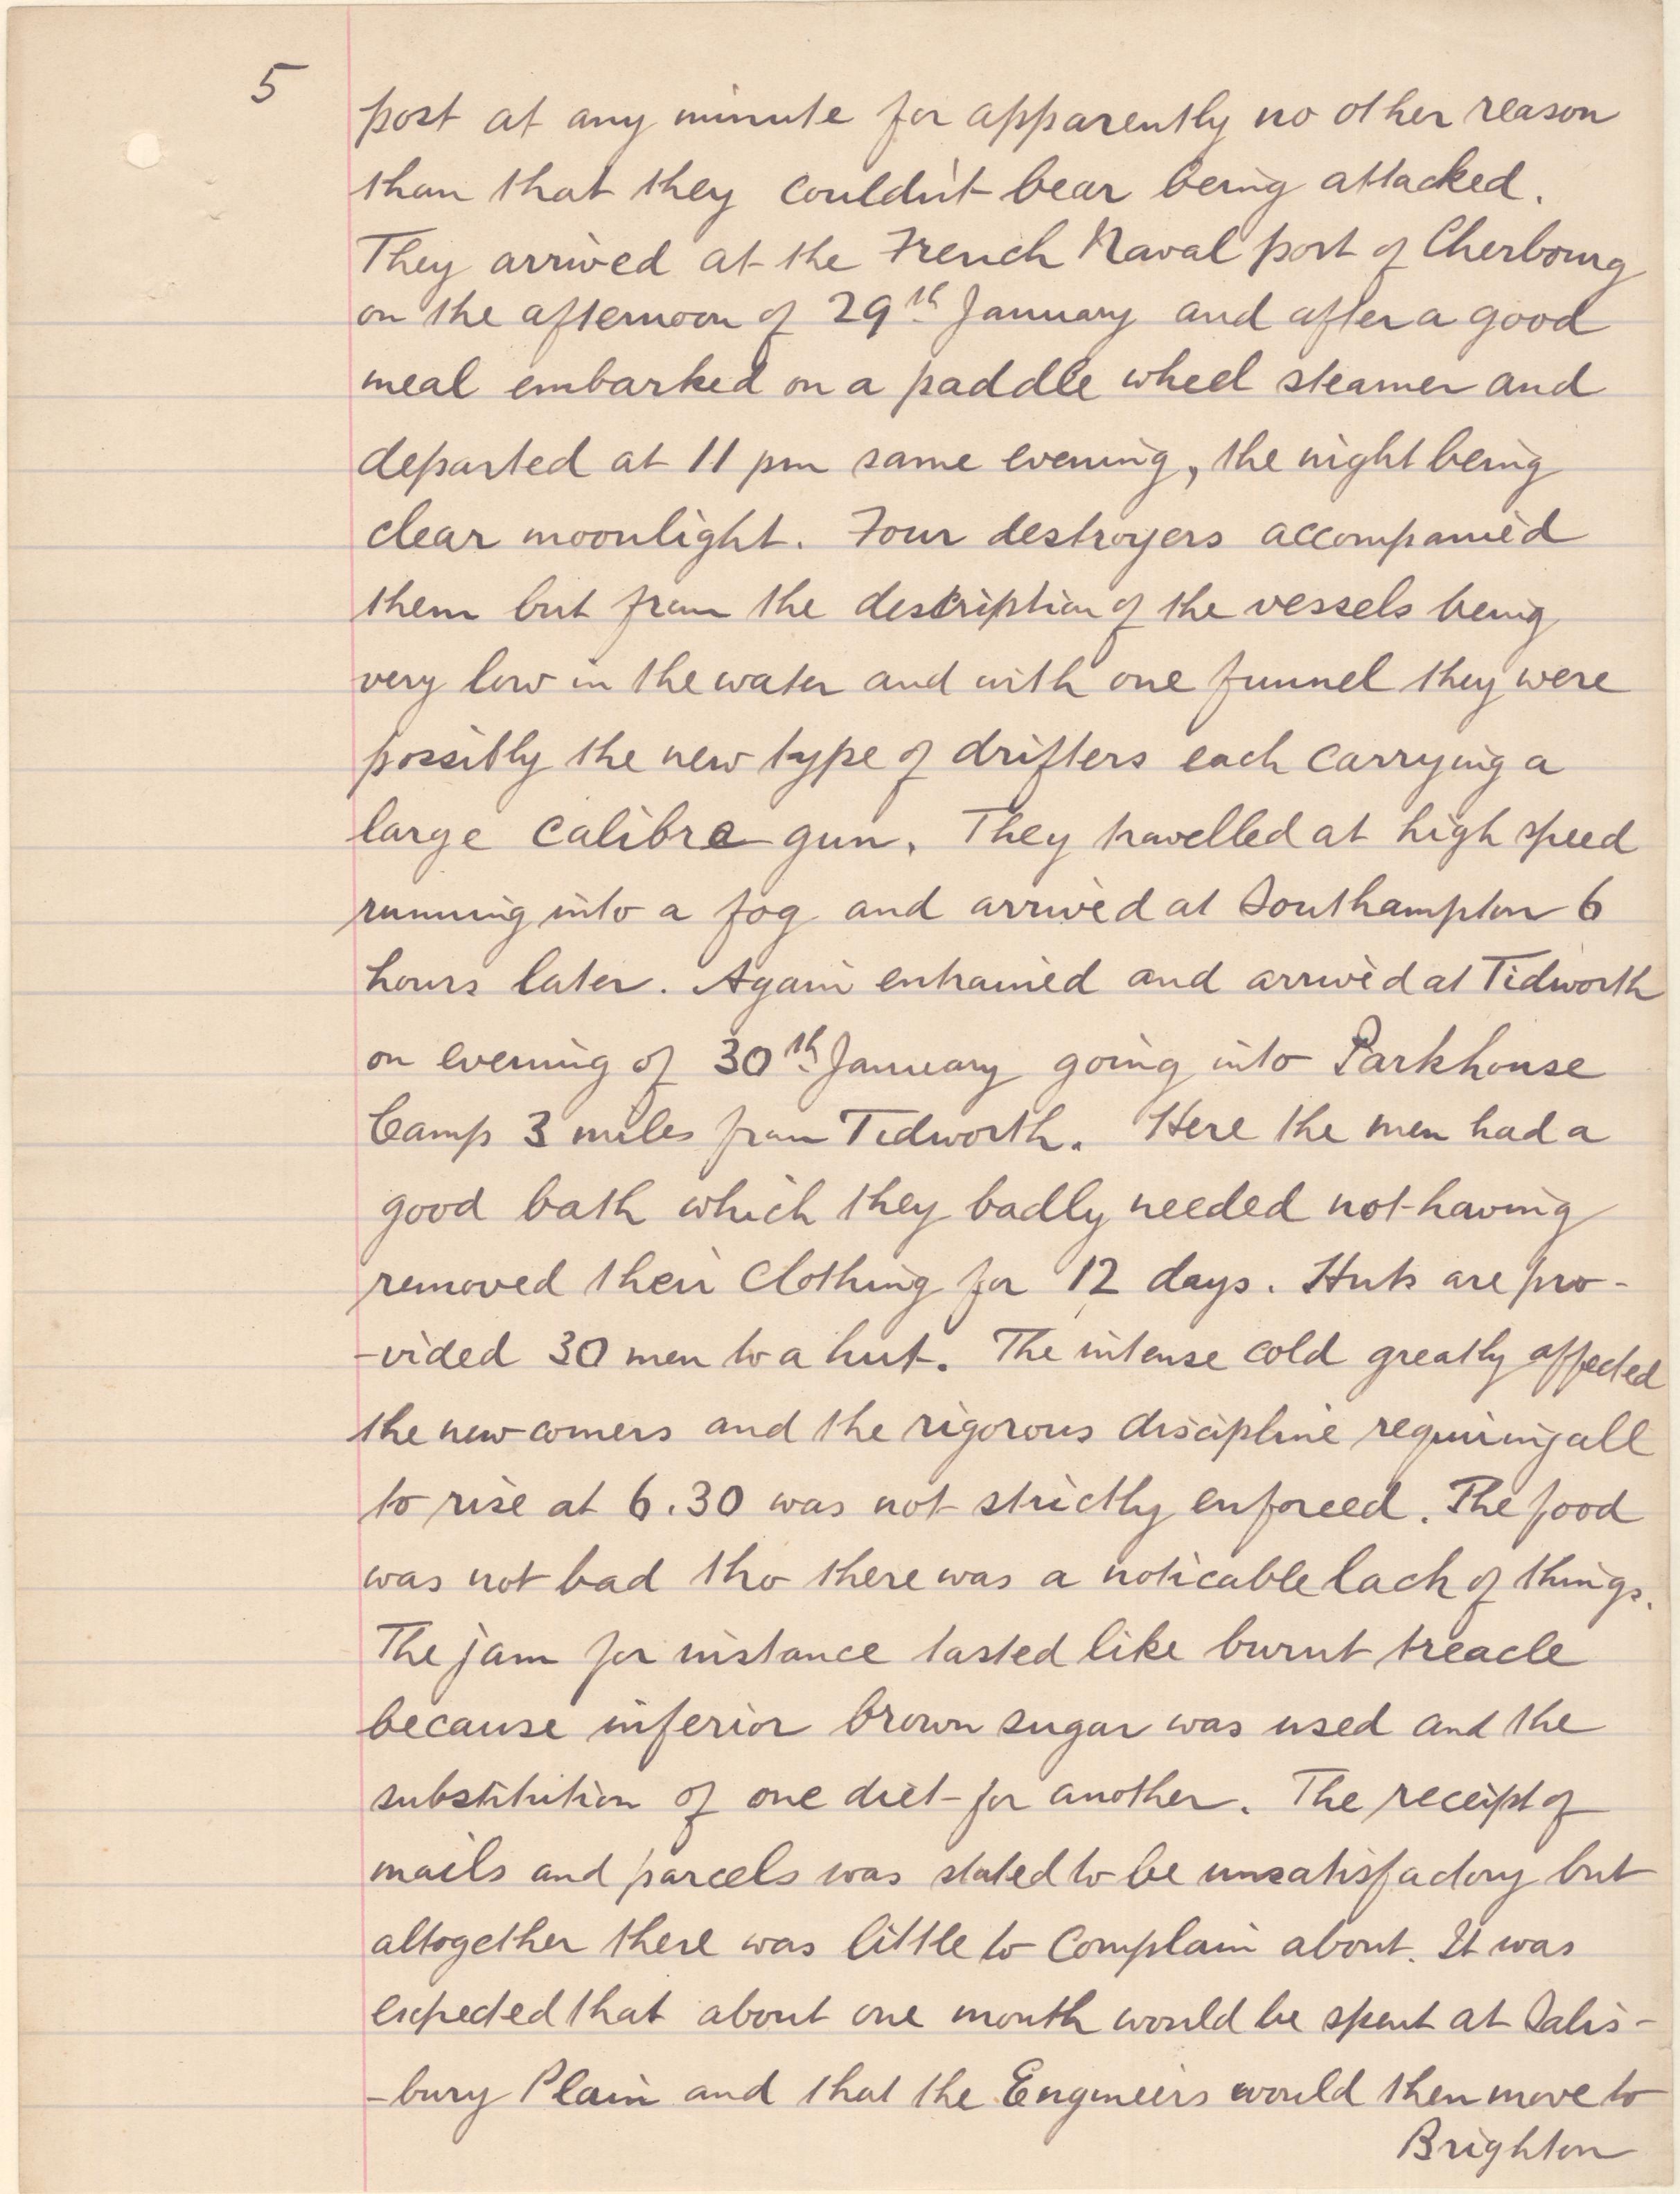 5
post at any minute for apparently no other reason
than that they couldn't bear being attacked.
They arrived at the French Naval port of Cherbourg
on the afternoon of 29th January and after a good
meal embarked on a paddle wheel steamer and
departed at 11 pm same evening, the night being
clear moonlight. Four destroyers accompanied
them but from the description of the vessels being
very low in the water and with one funnel they were
possibly the new type of drifters each carrying a
large calibre gun. They travelled at high speed
running into a fog and arrived at Southampton 6
hours later. Again entrained and arrived at Tidworth
on evening of 30th January going into Parkhouse
Camp 3 miles from Tidworth. Here the men had a
good bath which they badly needed not having
removed their clothing for 12 days. Huts are pro-
-vided 30 men to a hut. The intense cold greatly affected
the new comers and the rigorous discipline requiring all
to rise at 6.30 was not strictly enforced. The food
was not bad tho there was a noticable lack of things.
The jam for instance tasted like burnt treacle
because inferior brown sugar was used and the
substitution of one diet for another. The receipt of
mails and parcels was stated to be unsatisfactory but
altogether there was little to complain about. It was
expected that about one month would be spent at Salis-
-bury Plain and that the Engineers would then move to
Brighton